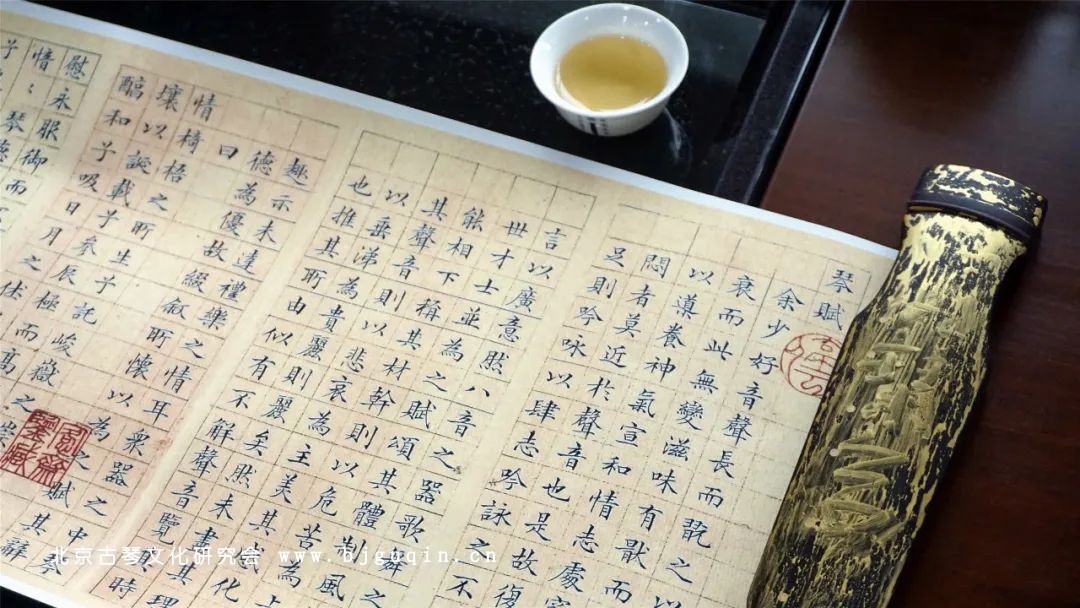 琴賦
余少好音聲長而翫之
衰而此無變滋味有猒而
以導養神氣宣和情志處窮
悶者莫近於聲音也是故復
足則吟咏以肆志吟詠之不
言以廣意然八音之器歌舞
世才士並為之賦頌其體制風
能相下稱其材幹則以危苦為上
其聲音則以悲哀為主美其化
以垂涕為貴麗則麗矣然未盡其理
也推其所由似有不解聲音覽其
趣示未達禮樂之情耳眾器之中琴
德為優故綴叙所懷以為之賦其辭
曰
椅梧之所生兮託峻嶽之崇
壤以誕載兮參辰極而高
醕和兮吸日月之休
慰永服御而
愔〻琴德
北京古琴文化研究会 www.bjguqin.cn